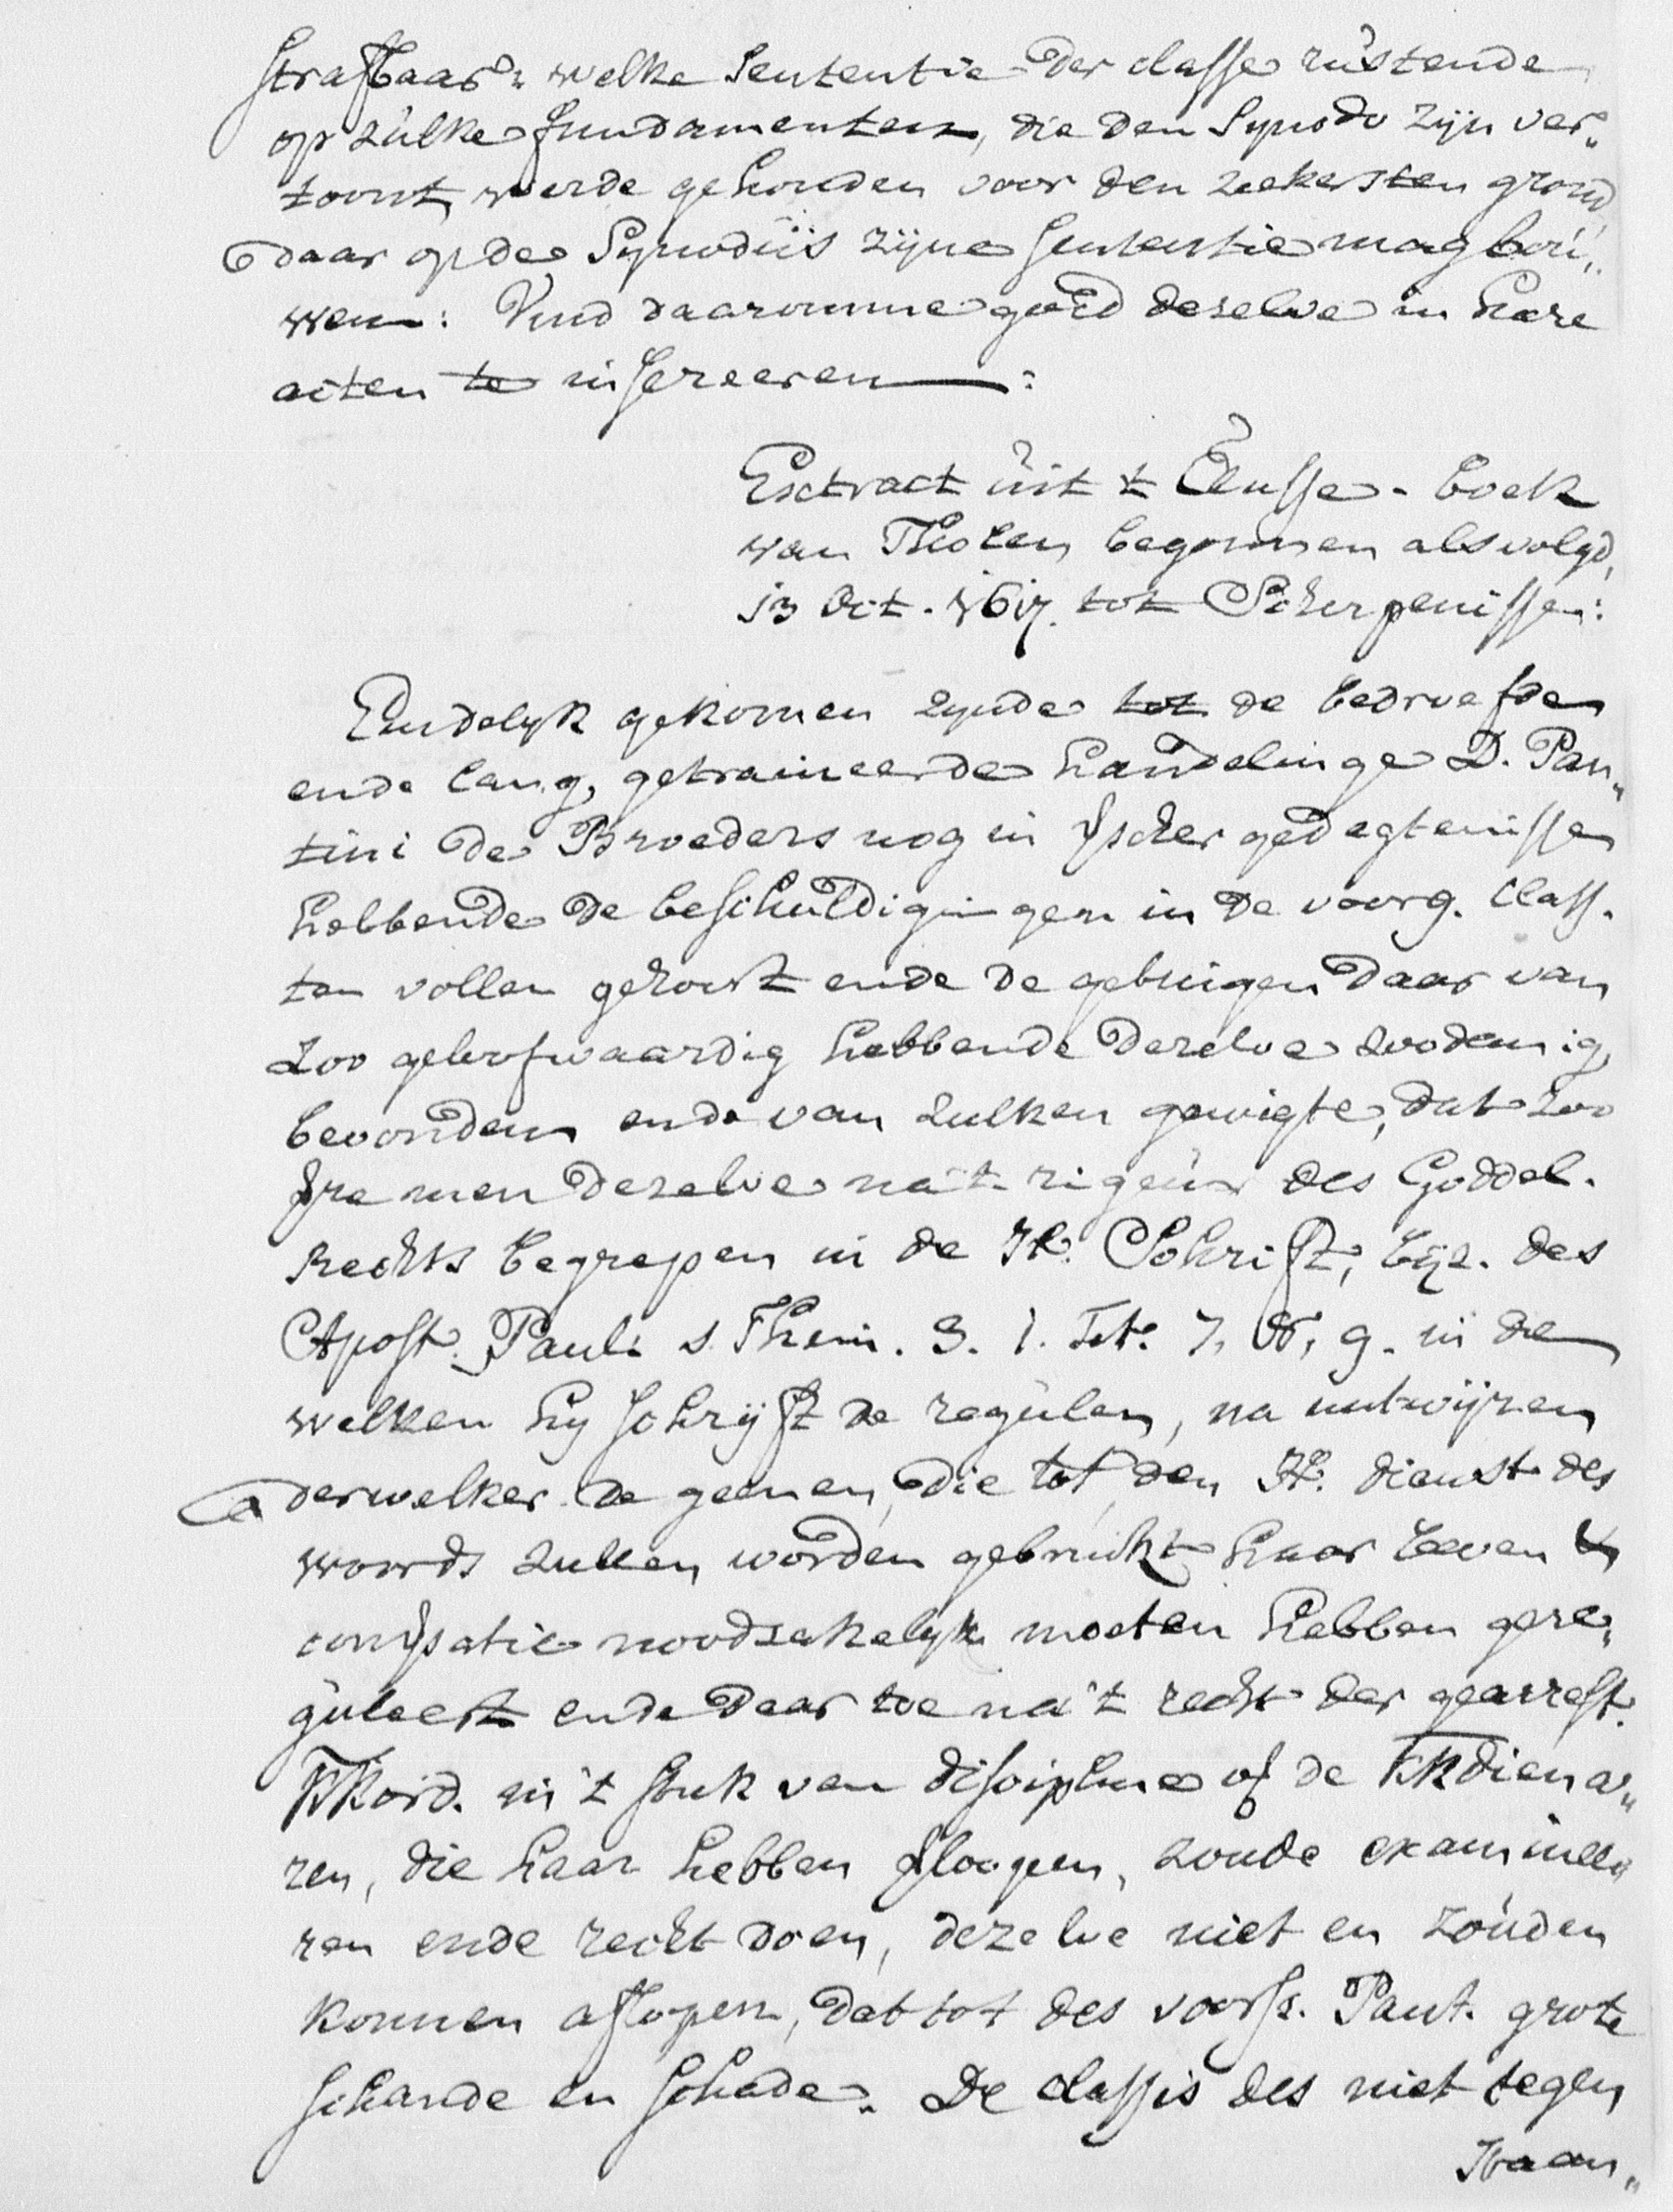 strafbaar: welke Sententie der classe rustende
op zulke fundamenten, die den Synodo zijn ver„
toont, werde gehouden voor den zekersten grond
daar op de Synodus zijne sententie mag boú„
wen: Vind daaromme goed deselve in hare
acten te insereeren:
Extract uit 't Classe-boek
van Tholen begonnen als volgd,
13 Oct. tot Scherpenisse:
Eindelyk gekomen zynde tot de bedroefde
ende lang, getraineerde handelinge D. Pan„
tini de Broeders nog in gedegtenisse
hebbende de beschuldigingen in de voorg. Class.
ten vollen gehoort ende de getuigen daar van
Zoo geloofwaardig hebbende dezelve zoodanig
bevonden ende van zulken gewigte, dat zoo
men dezelve na 't rigeur des Goddel.
Rechts begrepen in de H. Schrift, bijz. des
Apost. Pauli 1. Thim. 3. 1. Tit. 7, 8, 9. in de
welken hy schrijft de regulen, na uutwijzen
derwelker de geenen, die tot den H. dienst des
woords zullen worden gebruikt haar leven &
conversatie noodsakelyk moeten hebben gere„
guleert ende daar toe na 't recht der gearrest.
KKord. in 't stuk van discipline of de KKdiena„
ren, die haar hebben, zoude examinee„
ren ende recht doen, dezelve niet en zouden
konnen aflopen, dat tot des voorsz. Pant. grote
schande en schade. De classis des niet tegen
staan„